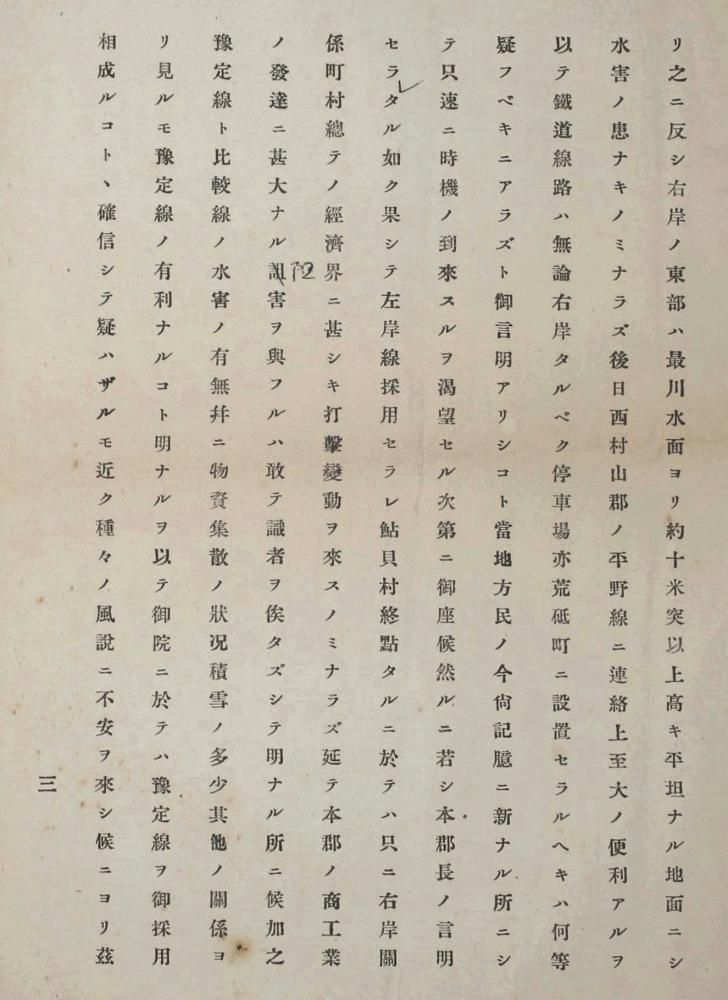 リ之ニ反シ右岸ノ東部ハ最川水面ヨリ約十米突以上高キ平坦ナル地面ニシ
水害ノ患ナキノミナラズ後日西村山郡ノ平野線ニ連絡上至大ノ便利アルヲ
以テ鐵道線路ハ無論右岸タルベク停車場亦荒砥町ニ設置セラルヘキハ何等
疑フベキニアラズト御言明アリシコト當地方民ノ今尙記臆ニ新ナル所ニシ
テ只速ニ時機ノ到來スルヲ渴望セル次第ニ御座候然ルニ若シ本郡長ノ言明
セラタル如ク果シテ左岸線採用セラレ鮎貝村終點タルニ於テハ只ニ右岸關
係町村總テノ經濟界ニ甚シキ打擊變動ヲ來スノミナラズ延テ本郡ノ商工業
ノ發達ニ甚大ナル詛害ヲ與フルハ敢テ識者ヲ俟タズシテ明ナル所ニ候加之
阻
豫定線ト比較線ノ水害ノ有無幷ニ物資集散ノ狀況積雪ノ多少其他ノ關係ヨ
リ見ルモ豫定線ノ有利ナルコト明ナルヲ以テ御院ニ於テハ豫定線ヲ御採用
相成ルコトヽ確信シテ疑ハザルモ近ク種々ノ風說ニ不安ヲ來シ候ニヨリ茲
三